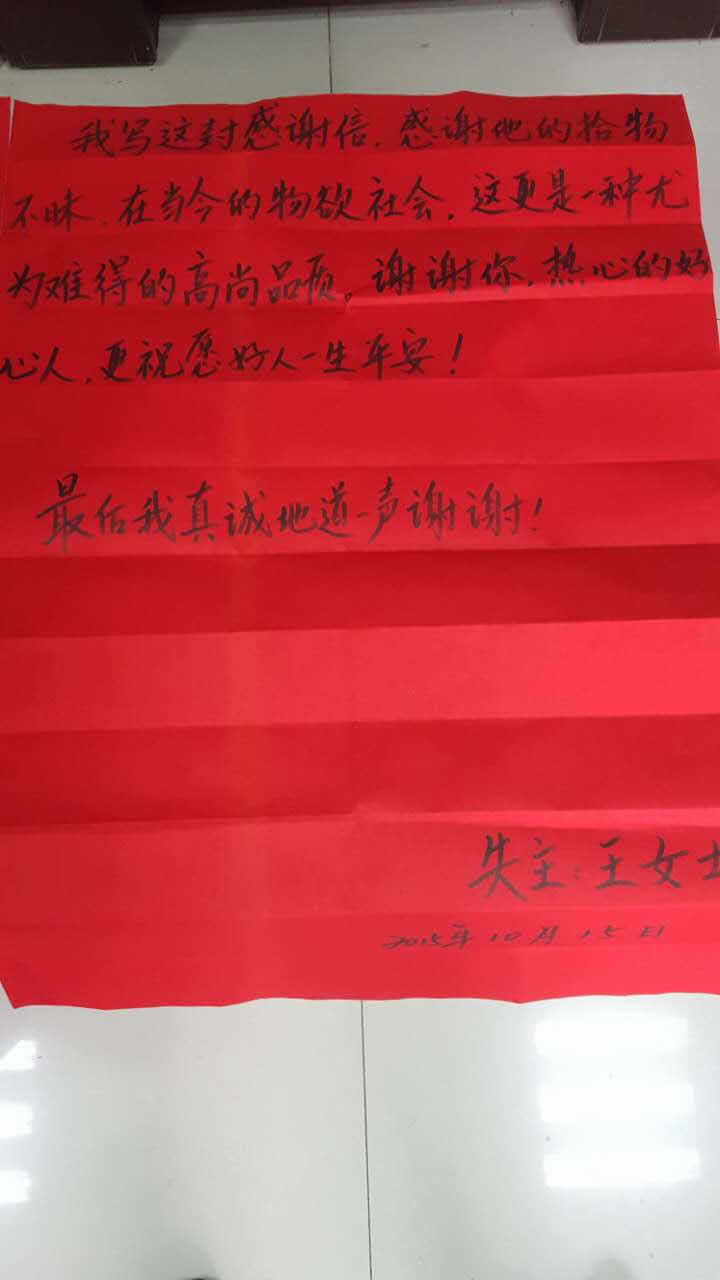 我写这封感谢信，感谢他的拾物
不昧，在当今的物欲社会，这更是一种尤
为难得的高尚品质。谢谢你，热心的好
心人，更祝愿好人一生平安！
最后我真诚地道一声谢谢！
失主：王女士
2015年10月15日